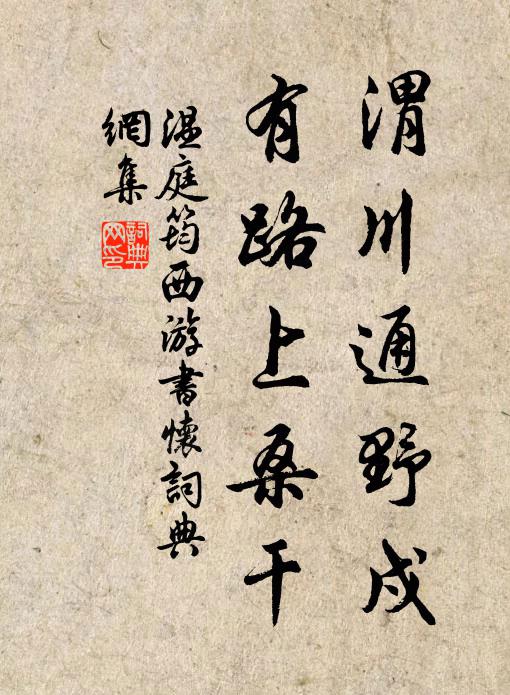 渭川通野戍
有路上桑干
温庭筠西游書懷詞典
網集
詞典
网印